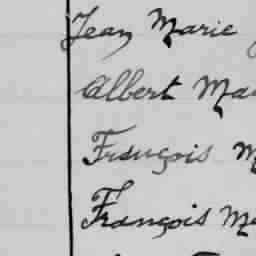 Jean Marie
Albert Ma
François M
François Ma